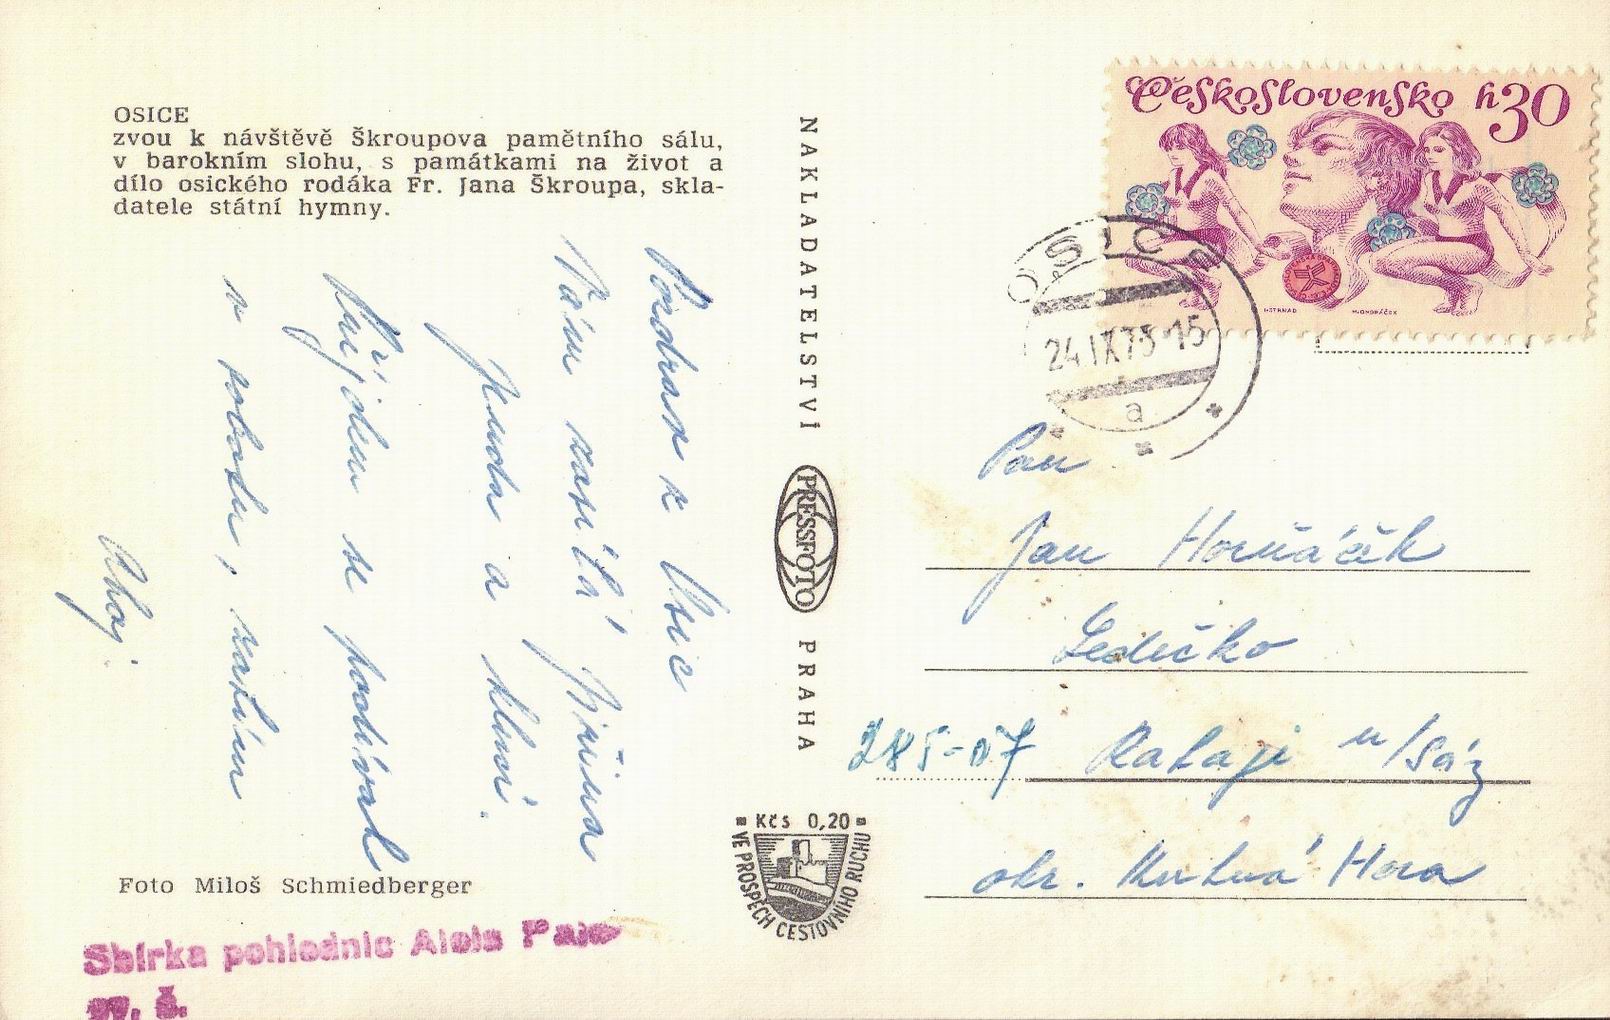 OSICE
zvou k návštěvě Škroupova pamětního sálu,
v barokním slohu, s památkami na život a
dílo osického rodáka Fr. Jana Škroupa, skla-
datele státní hymny.
Pozdrav z Osic
Vám zasílá Jiřina
Jenda a kluci.
Přijdem se podívat
v sobotu, zatím
Ahoj
Foto Miloš Schmiedberger
Sbírka pohlednic Alois
NAKLADATELSTVÍ
PRESSFOTO
PRAHA
Kčs 0,20
VE PROSPĚCH CESTOVNÍHO RUCHU
Československo h30
OSICE
24.IX.75-15
a
Pan
Jan Horňáček
Ledečko
285-07 Rataje n/Sáz
okr. Kutná Hora